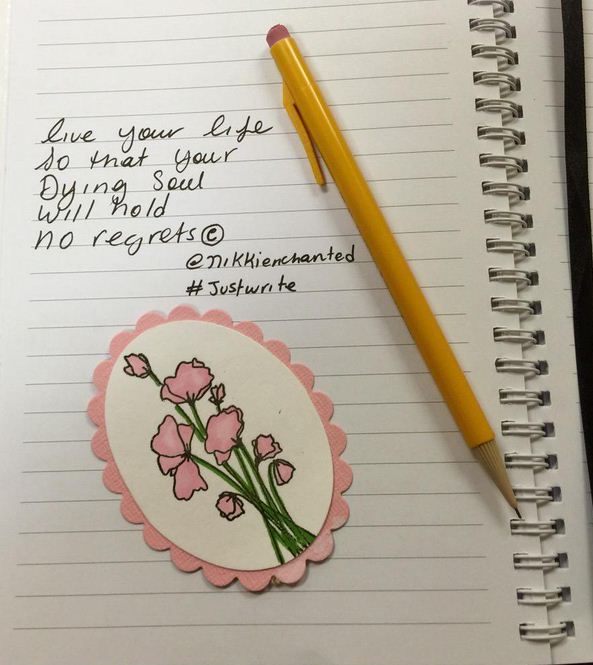 live your life
so that your
Dying Soul
will hold
no regrets©
@nikkienchanted
#Justwrite